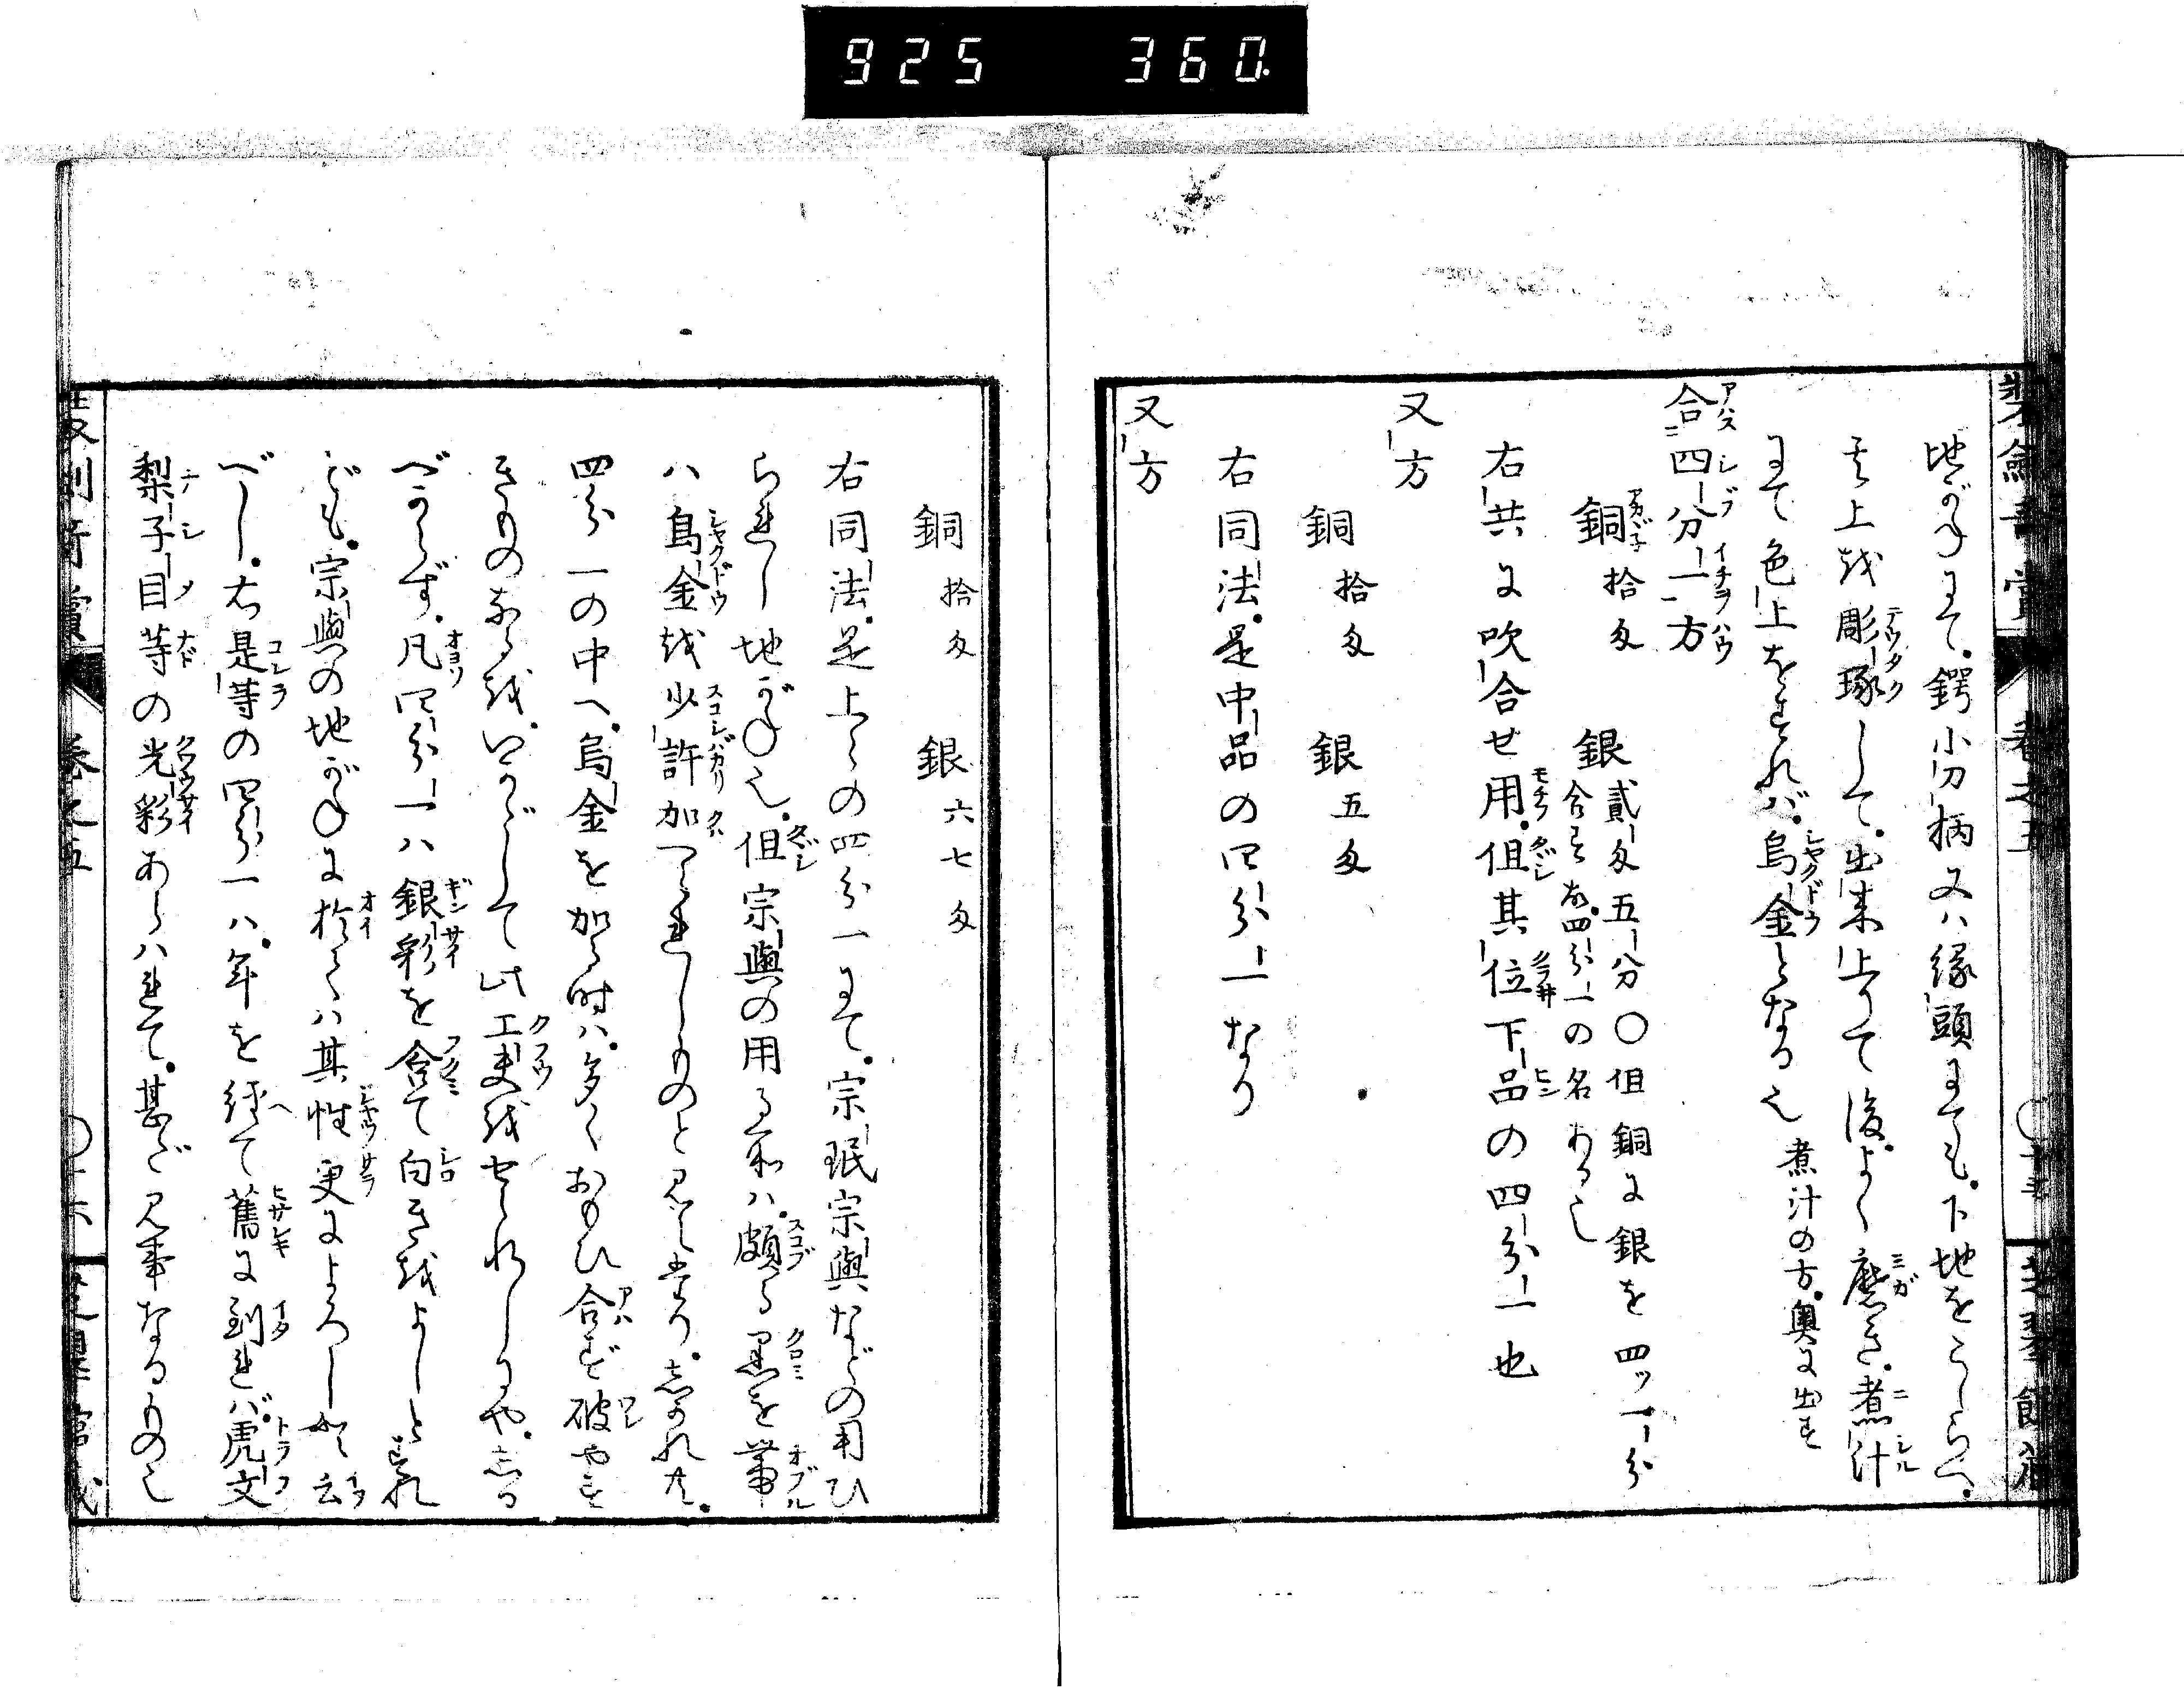 925 360.
地がねにて。鍔小刀柄又ハ縁頭にても。下地をこしらへ。
其上を彫琢して。出来上りて後。よく磨き。煮汁
にて色上をすれバ。烏金となる也 煮汁の方。奥に出す
合四分一方
銅拾匁 銀貳匁五分〇但銅に銀を四ツ一分
合する故。四分一の名あるし
右共に吹合せ用。但其位下品の四分一也
又方
銅拾匁 銀五匁
右同法。是中品の四分一なり
又方
銅拾匁 銀六七匁
右同法。是上々の四分一にて。宗珉宗與などの用ひ
られし地がね也。但宗與の用る所ハ。頗る黒みを帯
ハ烏金を少許加へられしものと見えたり。しかれ共。
四分一の中へ。烏金を加る時ハ。多くおもひ合ず破やす
きものなるを。いかがして此工夫をせられしにや。しる
べからず。凡四分一ハ銀彩を含て白きをよしとすれ
ども。宗與の地がねに於てハ其性更によろしと云
べし。右是等の四分一ハ。年を経て舊に到れバ。虎文
梨子目等の光彩あらハれて。甚ざ見事なるもの也